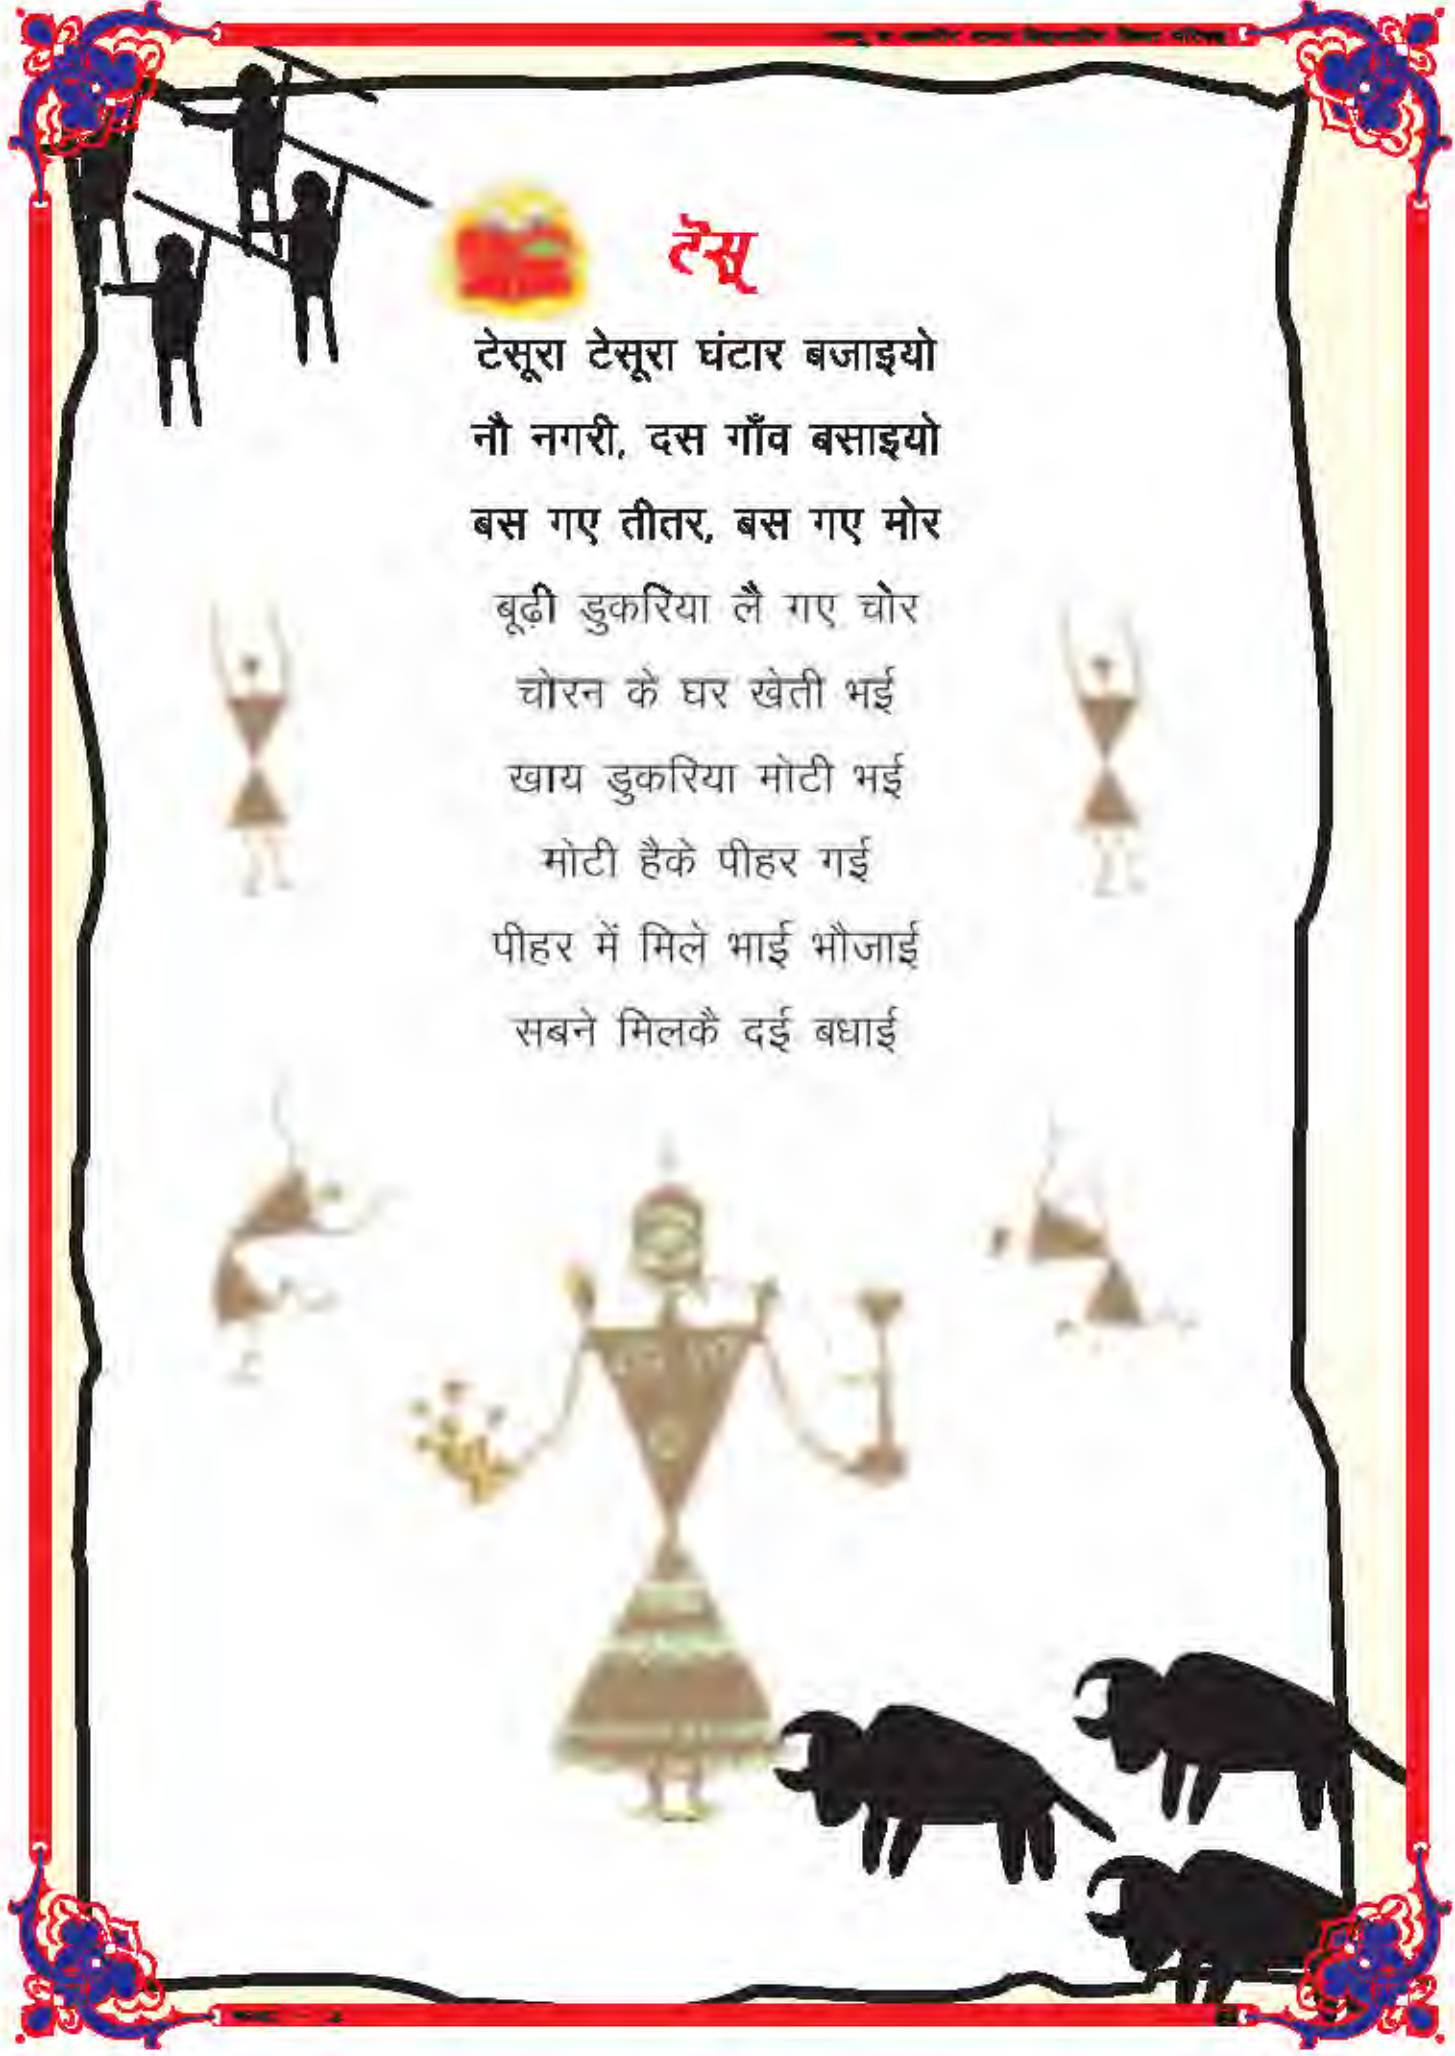 टेसू
टेसूरा टेसूरा घंटार बजाइयो
नौ नगरी, दस गाँव बसाइयो
बस गए तीतर, बस गए मोर
बूढ़ी डुकरिया लै गए चोर
चोरन के घर खेती भई
खाय डुकरिया मोटी भई
मोटी हैके पीहर गई
पीहर में मिले भाई भौजाई
सबने मिलकै दई बधाई